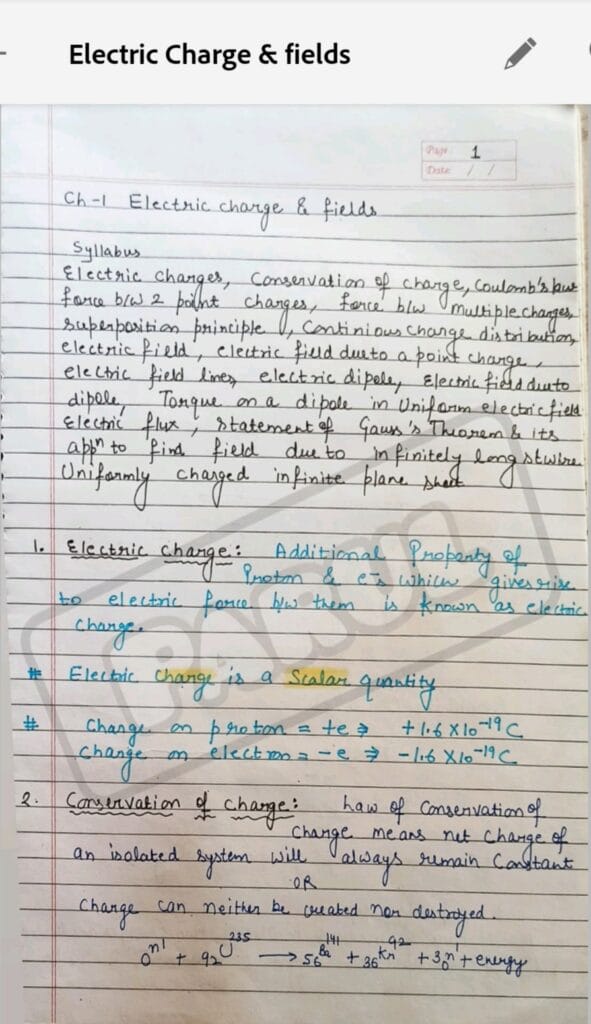 Electric Charge & fields
Page 1
Date / /
Ch-1 Electric charge & fields
Syllabus
Electric charges, Conservation of charge, Coulomb's law
force b/w 2 point charges, force b/w multiple charges,
superposition principle, Continious charge distribution,
electric field, electric field due to a point charge,
electric field lines, electric dipole, Electric field due to
dipole, Torque on a dipole in Uniform electric field
Electric flux, statement of Gauss's Theorem & its
appn to find field due to infinitely long st wire
Uniformly charged infinite plane sheet
1. Electric charge: Additional Property of
Proton & e⁻s which gives rise
to electric force b/w them is known as electric
charge.
# Electric charge is a Scalar quantity
# Charge on proton = +e ⇒ +1.6 X 10⁻¹⁹ C
Charge on electron = -e ⇒ -1.6 X 10⁻¹⁹ C
2. Conservation of charge: Law of Conservation of
Charge means net charge of
an isolated system will always remain Constant
OR
Charge can neither be created nor destroyed.
₀n¹ + ₉₂U²³⁵ → ₅₆Ba¹⁴¹ + ₃₆Kr⁹² + 3₀n¹ + energy
PARUL